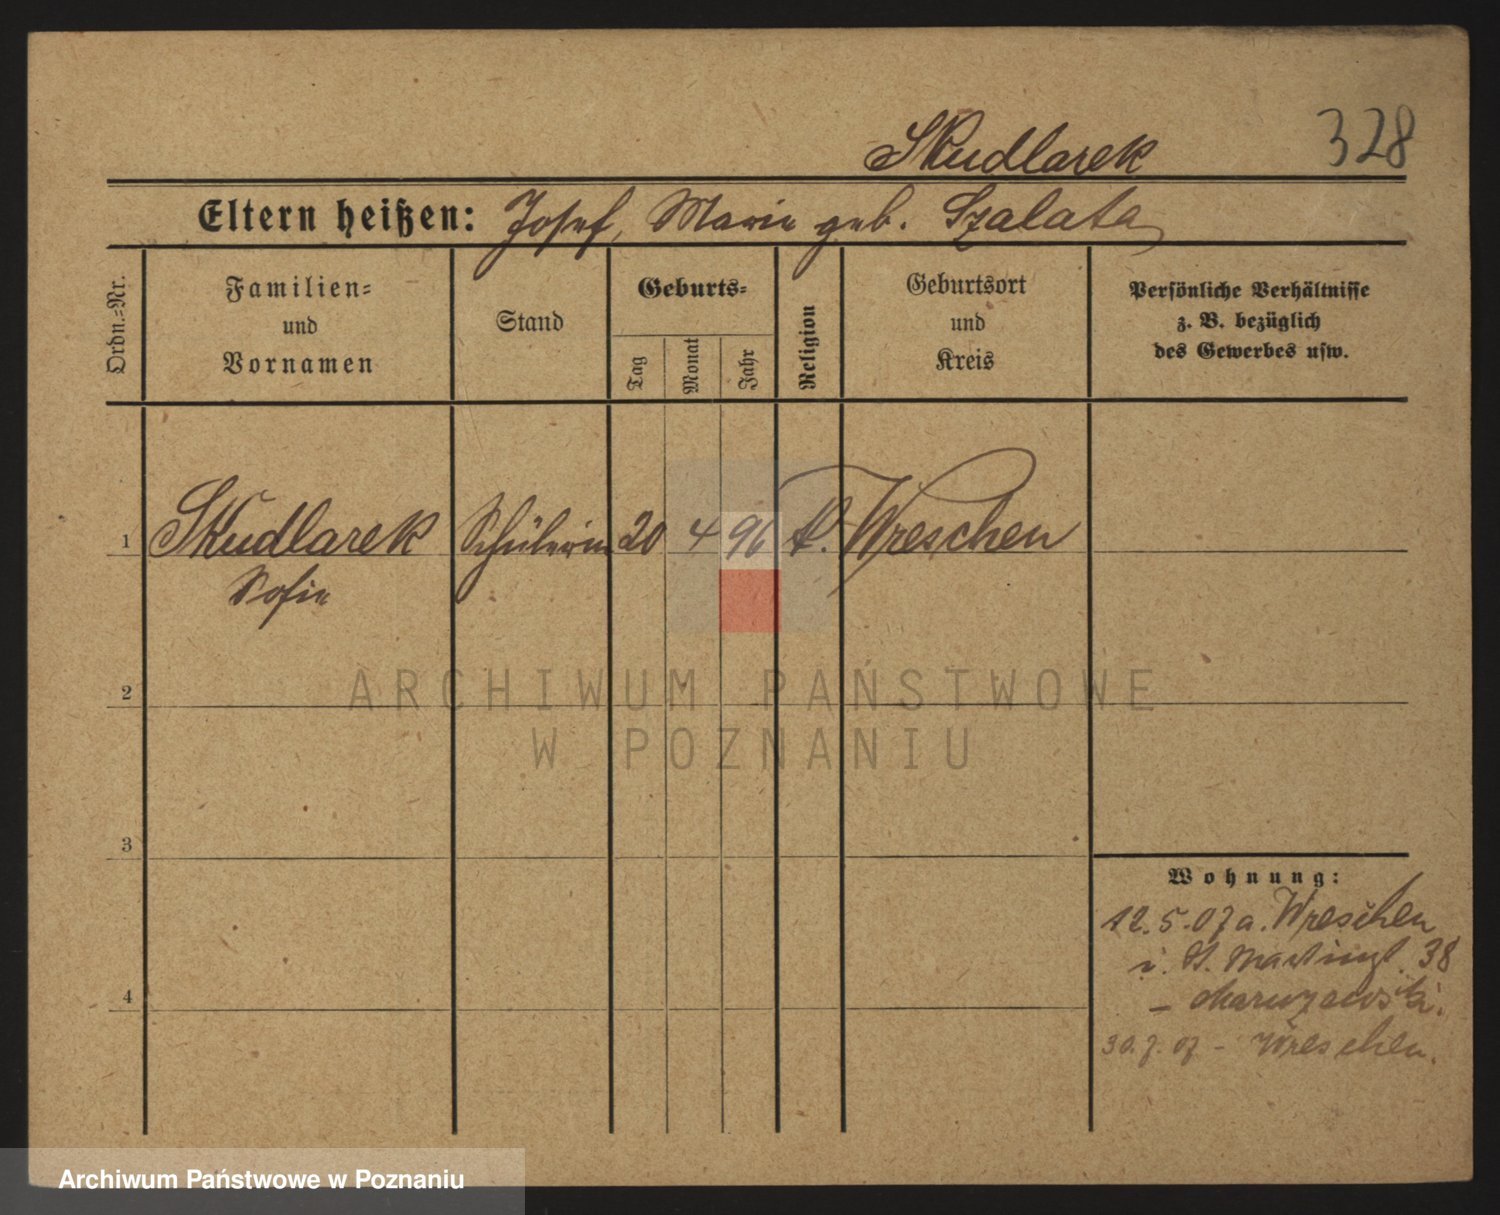 Skudlarek 328
Eltern heißen: Josef, Marie geb. Szalata
Ordn.-Nr.
Familien-
und
Vornamen
Stand
Geburts-
Tag
Monat
Jahr
Religion
Geburtsort
und
Kreis
Persönliche Verhältnisse
z. B. bezüglich
des Gewerbes usw.
1 Skudlarek Schülerin 20 4 96 k. Wreschen
Sofie
2
3
4
Wohnung:
12.5.07 a. Wreschen
i. St. Martinst. 38
30.7.07 - Wreschen.
ARCHIWUM PAŃSTWOWE
W POZNANIU
Archiwum Państwowe w Poznaniu